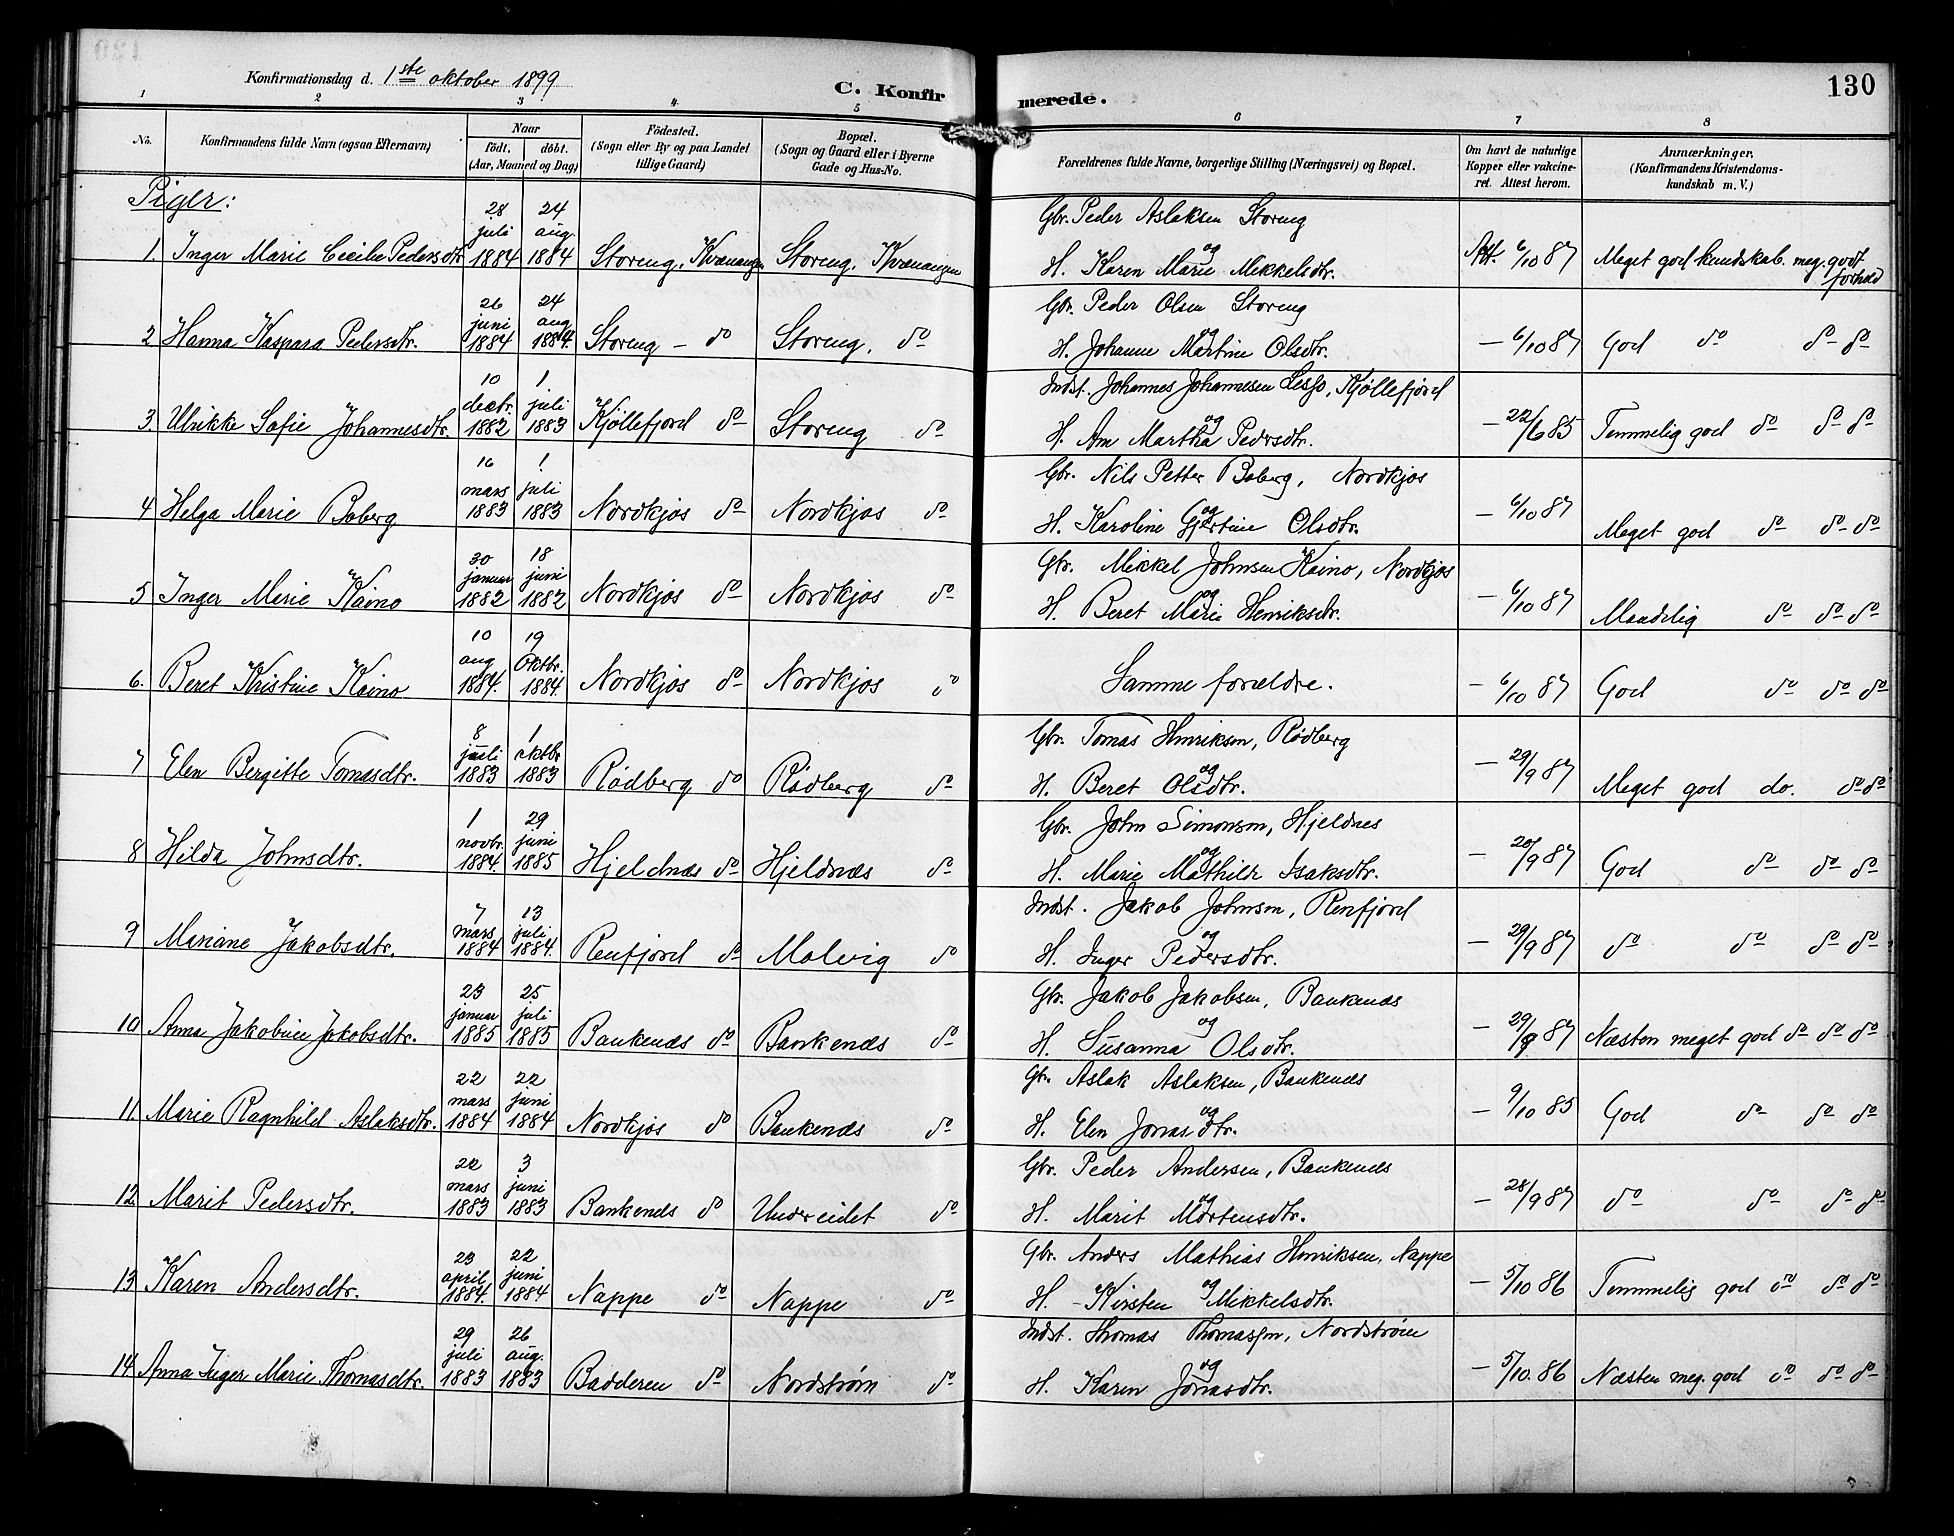 Konfirmationsdag d. 1ste oktober 1899
C. Konfirmerede.
130
1 2 3 4 5 6 7 8
No.
Konfirmandens fulde Navn (ogsaa Efternavn)
Naar
födt. döbt.
(Aar, Maaned og Dag)
Födested.
(Sogn eller By og paa Landet
tillige Gaard)
Bopæl.
(Sogn og Gaard eller i Byerne
Gade og Hus-No.
Forældrenes fulde Navne, borgerlige Stilling (Næringsvei) og Bopæl.
Om havt de naturlige
Kopper eller vakcine-
ret. Attest herom.
Anmærkninger.
(Konfirmandens Kristendoms-
kundskab m. V.)
Piger:
1. Inger Marie Cecilie Pedersdtr. 28 juli 1884 24 aug. 1884 Storeng, Kvænangen Storeng, Kvænangen
Gbr. Peder Aslaksen Storeng
og
H. Karen Marie Mikkelsdtr.
Att. 6/10 87 Meget god kundskab. meg. godt forhold
2 Hanna Kaspara Pedersdtr. 26 juni 1884 24 aug 1884. Storeng – do Storeng, do
Gbr. Peder Olsen Storeng
og
H. Johanne Martine Olsdtr.
– 6/10 87 God do do do
3. Ulrikke Sofie Johannesdtr. 10 dectr. 1882 1. juli 1883 Kjøllefjord do Storeng do
Indst. Johannes Johannesen Lesjo, Kjøllefjord
og
H. Ane Martha Pedrsdtr.
– 22/6 85 Temmelig god do do do
4 Helga Marie Boberg 16 mars 1883 1 juli 1883 Nordkjos do Nordkjos do
Gbr. Nils Petter Boberg, Nordkjos
og
H. Karoline Gjertine Olsdtr.
– 6/10 87 Meget god do do do
5 Inger Marie Kaino 30 januar 1882 18 juni 1882 Nordkjos do Nordkjos do
Gbr. Mikkel Johnsen Kaino, Nordkjos
og
H. Beret Marie Henriksdtr.
– 6/10 87 Maadelig do do do
6. Beret Kristine Kaino 10 aug 1884. 19 Oktbr. 1884. Nordkjos do Nordkjos do
Samme forældre.
– 6/10 87 God do do do
7 Elen Bergitte Tomasdtr. 8 juli 1883 1 oktbr 1883 Rødberg do Rødberg do
Gbr. Tomas Henriksen, Rødberg
og
H. Beret Olsdtr.
– 29/9 87 Meget god do. do do
8 Hilda Johnsdtr. 1 novbr. 1884. 29 juni 1885 Hjeldnæs do Hjeldnæs do
Gbr. John Simonsen, Hjeldnes
og
H. Marie Mathilde Isaksdtr.
– 20/9 87 God do do do
9 Mariane Jakobsdtr. 7 mars 1884 13 juli 1884. Renfjord do Molvig do
Indst. Jakob Johnsen, Renfjord
og
H. Inger Pedersdtr.
– 29/9 87 do do do do
10 Anna Jakobine Jakobsdtr. 23 januar 1885 25 juli 1885 Bankenæs do Bankenæs do
Gbr. Jakob Jakobsen, Bankenæs
og
H. Susanna Olsdtr.
– 29/9 87 Næsten meget god do do do
11. Marie Ragnhild Aslaksdtr. 22 mars 1884 22 juni 1884 Nordkjos do Bankenæs do
Gbr. Aslak Aslaksen, Bankenæs
og
H. Elen Jonasdtr.
– 9/10 85 God do do do
12 Marit Pedersdtr. 22 mars 1883 3 juni 1883 Bankenæs do Undereidet do
Gbr. Peder Andersen, Bankenæs
og
H. Marit Mortensdtr.
– 28/9 87 do do do do
13 Karen Andersdtr. 23 april 1884. 22 juni 1884 Nappe do Nappe do
Gbr. Anders Mathias Henriksen, Nappe
og
H. Kirsten Mikkelsdtr.
– 5/10 86 Temmelig god do do do
14 Anna Inger Marie Thomasdtr. 29 juli 1883 26 aug. 1883 Badderen do Nordstrøm do
Indst. Thomas Thomassen, Nordstrøm
og
H. Karen Jonasdtr.
– 5/10. 86 Næsten meg. god do do do